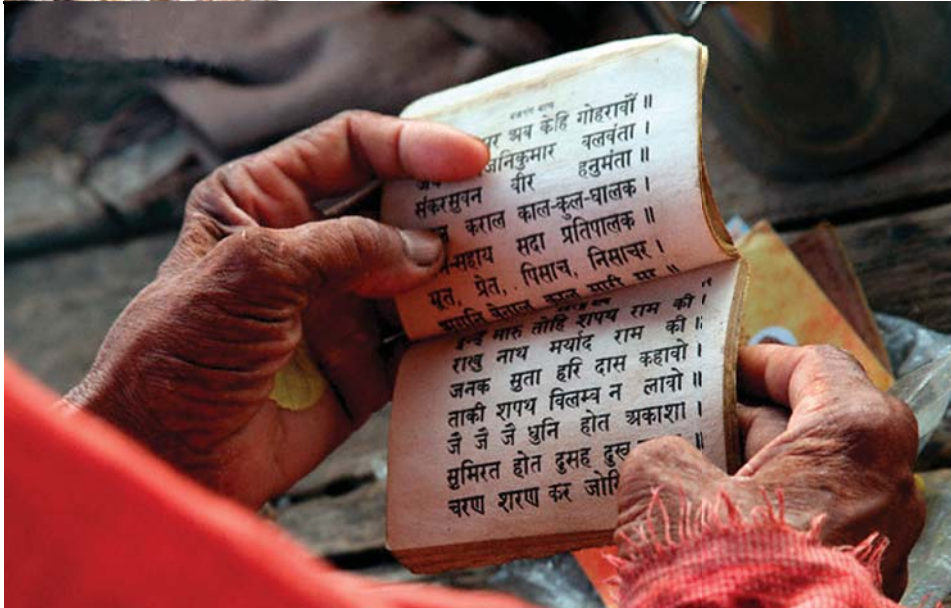 बजरंग बाण
अब केहि गोहरावौं ॥
जनिकुमार बलवंता ।
संकरसुवन बीर हनुमंता ॥
कराल काल-कुल-घालक ।
सहाय सदा प्रतिपालक ॥
भूत, प्रेत, पिसाच, निसाचर ।
बेताल काल मारी मर ॥
इन्हें मारु तोहि शपथ राम की ।
राखु नाथ मर्याद राम की ॥
जनक सुता हरि दास कहावो ।
ताकी शपथ विलम्ब न लावो ॥
जै जै जै धुनि होत अकाशा ।
सुमिरत होत दुसह दुख ॥
चरण शरण कर जोरि